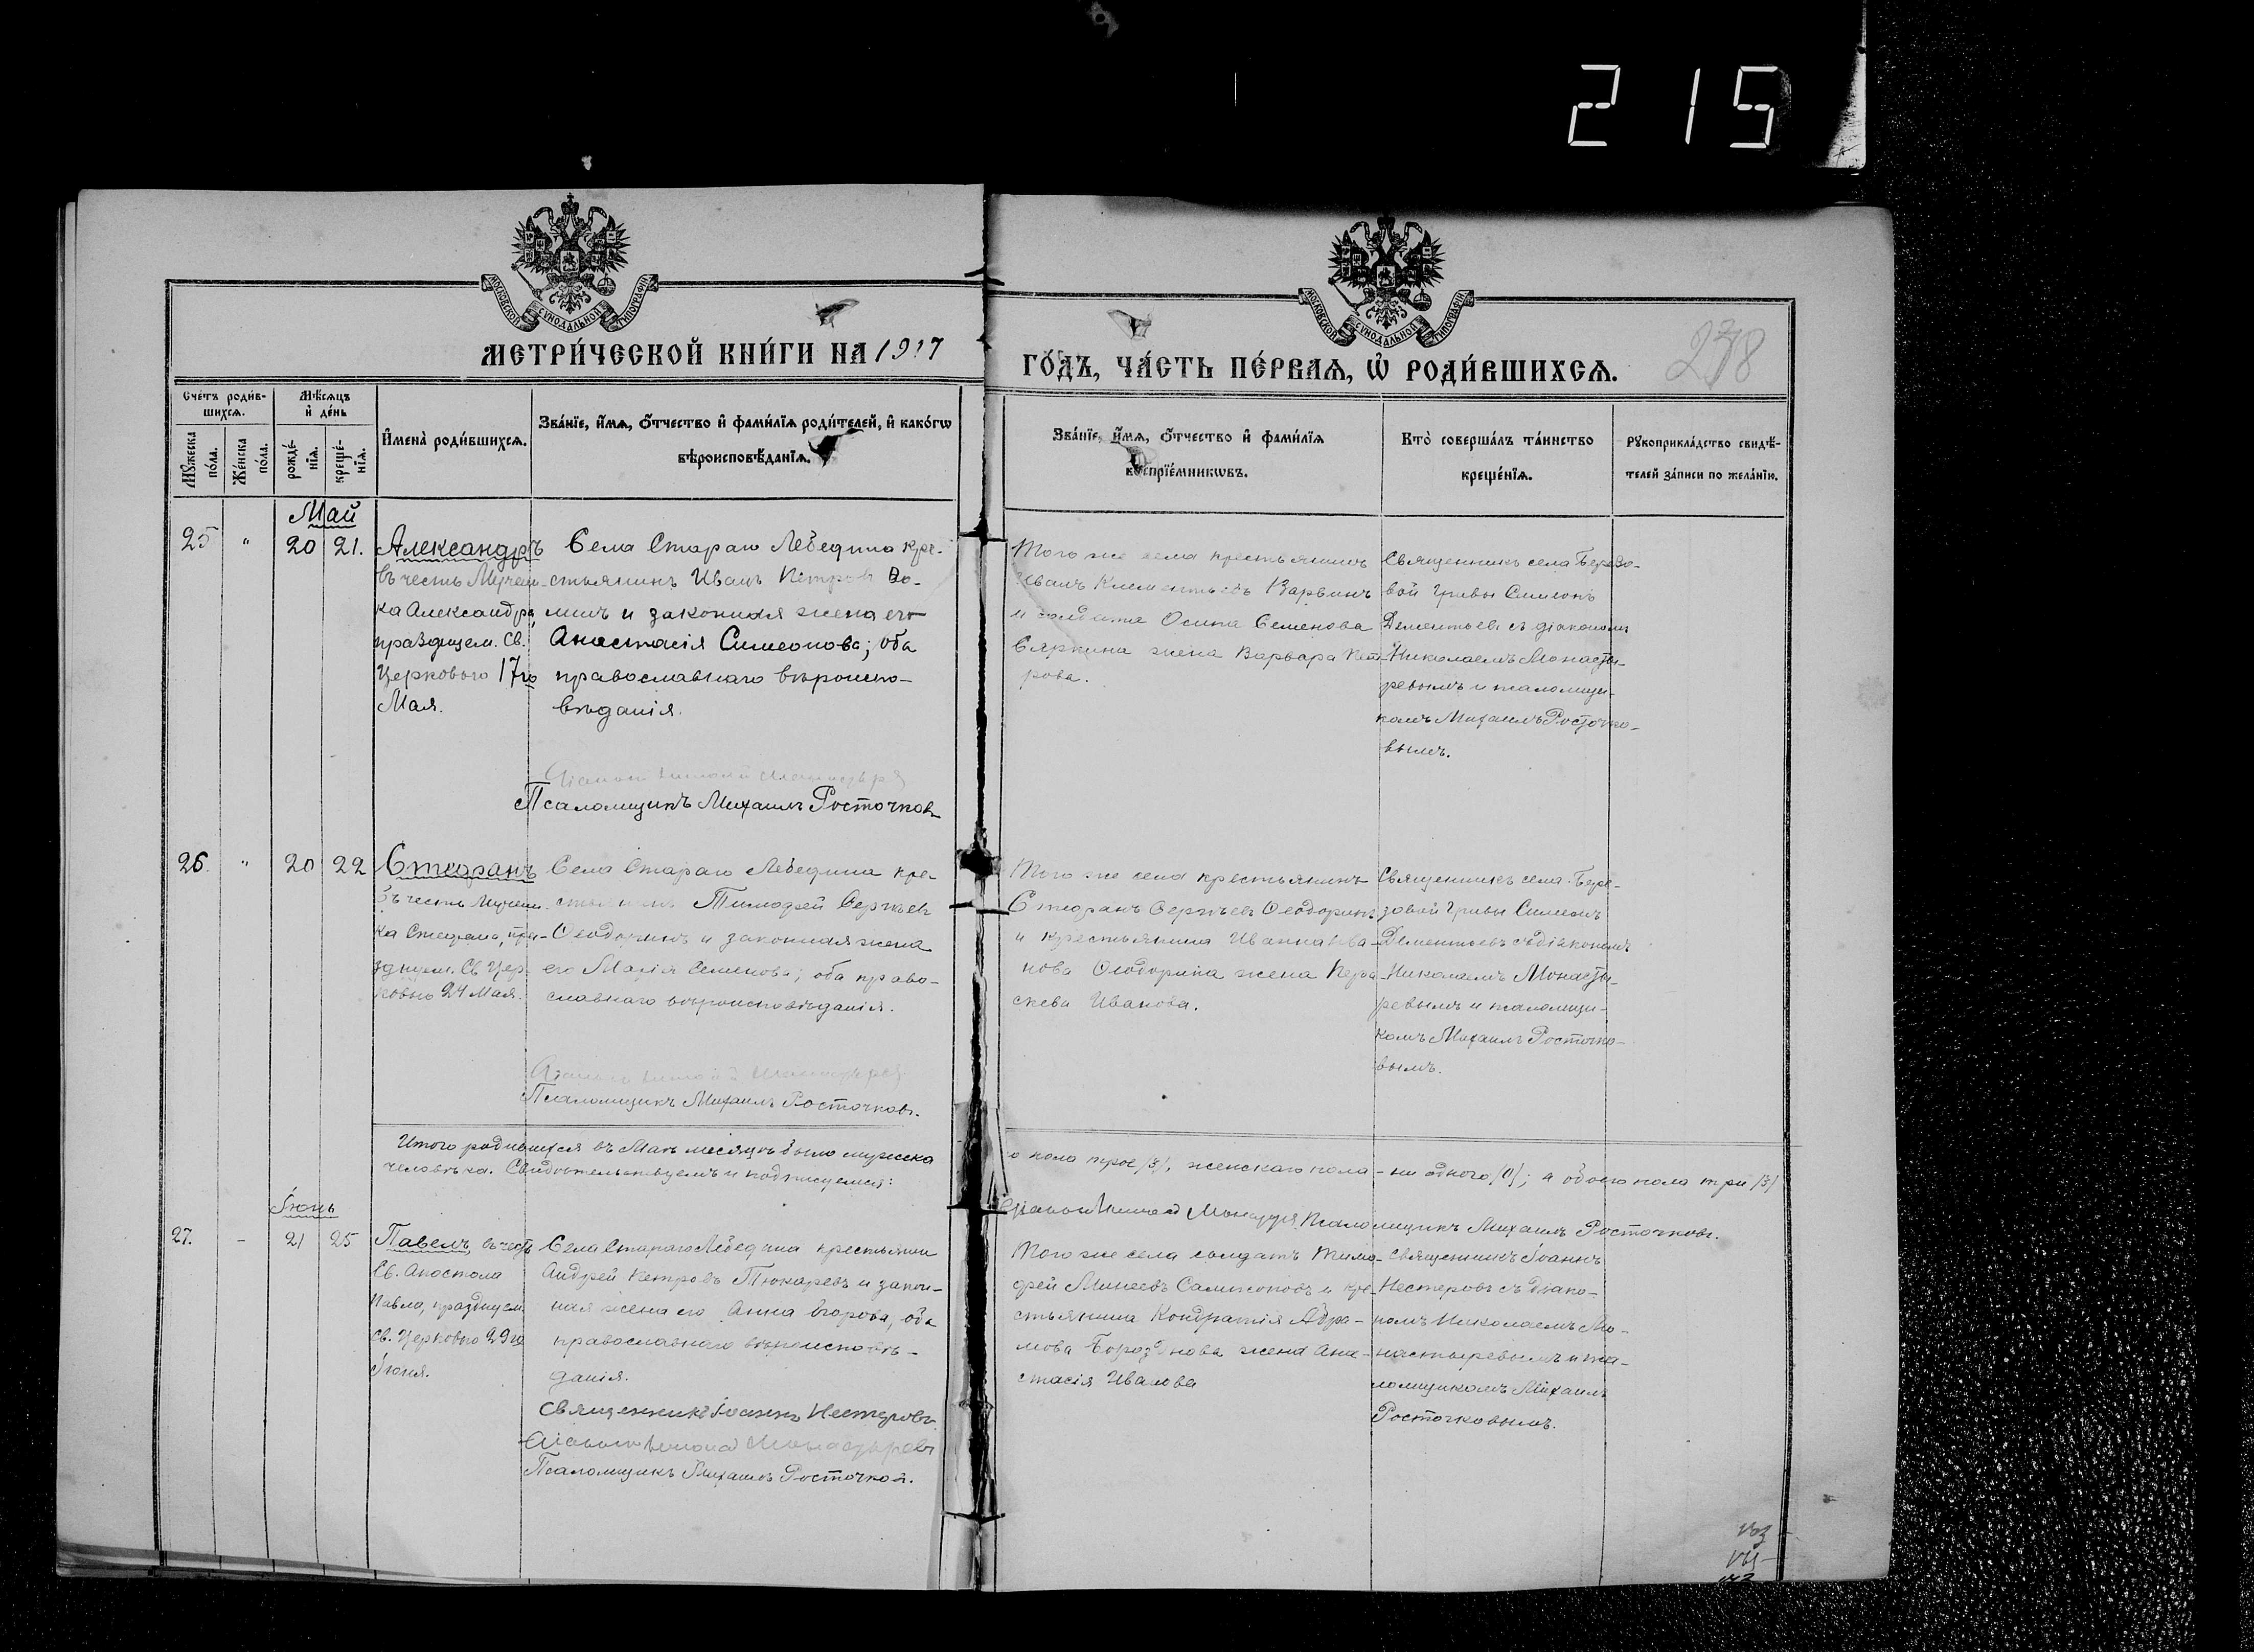 215
МОСКОВСКОЙ СѴНОДАЛЬНОЙ ТИПОГРАФІИ
МОСКОВСКОЙ СѴНОДАЛЬНОЙ ТИПОГРАФІИ
МЕТРИ́ЧЕСКОЙ КНИ́ГИ НА 1917
ГО́ДЪ, ЧА́СТЬ ПЕ́РВАѦ, Ѡ҆ РОДИ́ВШИХСѦ.
278
Сче́тъ роди́в-
шихсѧ.
Мѣ́сѧцъ
и҆ де́нь
Мꙋ́жеска
по́ла.
Же́нска
по́ла.
рожде́-
нїѧ.
креще́-
нїѧ.
И҆мена̀ роди́вшихсѧ.
Зва́нїе, и҆́мѧ, ѻ҆́тчество и҆ фами́лїѧ роди́телей, и҆ како́гѡ
вѣроисповѣ́данїѧ.
Зва́нїе, и҆́мѧ, ѻ҆́тчество и҆ фами́лїѧ
воспрїе́мникѡвъ.
Кто̀ соверша́лъ та́инство
креще́нїѧ.
Рꙋкоприкла́дство свидѣ́-
телей за́писи по жела́нїю.
Май
25 " 20 21.
Александръ
въ честь Мучени-
ка Александра,
празднуем. Св.
Церковью 17го
Мая.
Села Стараго Лебедина кре-
стьянинъ Иванъ Петровъ
и законная жена его
Анастасія Симеонова; оба
православнаго вѣроиспо-
вѣданія.
Псаломщикъ Михаилъ Росточковъ
Того же села крестьянинъ
Иванъ Клементьевъ Варвинъ
и солдата Осипа Семенова
жена Варвара Пет-
рова.
Священникъ села Берёзо-
вой Гривы Симеонъ
Дементьевъ съ діакономъ
Николаемъ Монасты-
ревымъ и псаломщи-
комъ Михаиломъ Росточко-
вымъ.
26. " 20 22
Стефанъ
въ честь Мучени-
ка Стефана, пра-
зднуем. Св. Цер-
ковью 24 Мая.
Села Стараго Лебедина кре-
стьянинъ Тимофей Сергѣевъ
Ѳеодоринъ и законная жена
его Марія Семенова; оба право-
славнаго вѣроисповѣданія.
Псаломщикъ Михаилъ Росточковъ.
Того же села крестьянинъ
Стефанъ Сергѣевъ Ѳеодоринъ
и крестьянина Ивана Ива-
нова Ѳеодорина жена Пара-
скева Иванова.
Священникъ села Бере-
зовой Гривы Симеонъ
Дементьевъ съ діакономъ
Николаемъ Монасты-
ревымъ и псаломщи-
комъ Михаиломъ Росточко-
вымъ.
Итого родившихся въ Маѣ мѣсяцѣ было мужска
го пола трое /3/, женскаго пола - ни одного /0/; а обоего пола три /3/
человѣка. Свидѣтельствуемъ и подписуемся:
Псаломщикъ Михаилъ Росточковъ.
Іюнь
27. - 21 25
Павелъ, въ честь
Св. Апостола
Павла, празднуем.
Св. Церковью 29го
Іюня.
Села Стараго Лебедина крестьянин
Андрей Петровъ Тюкаревъ и закон-
ная жена его Анна Егорова, оба
православнаго вѣроисповѣ-
данія.
Священникъ Іоаннъ Нестеровъ
Псаломщикъ Михаилъ Росточков.
Того же села солдатъ Тимо-
фей Минеевъ Самсоновъ и кре-
стьянина Кондратія Абра-
мова Бороздцова жена Ана-
стасія Иванова
Священникъ Іоаннъ
Нестеровъ съ діако-
номъ Николаемъ Мо-
настыревымъ и пса-
ломщикомъ Михаиломъ
Росточковымъ.